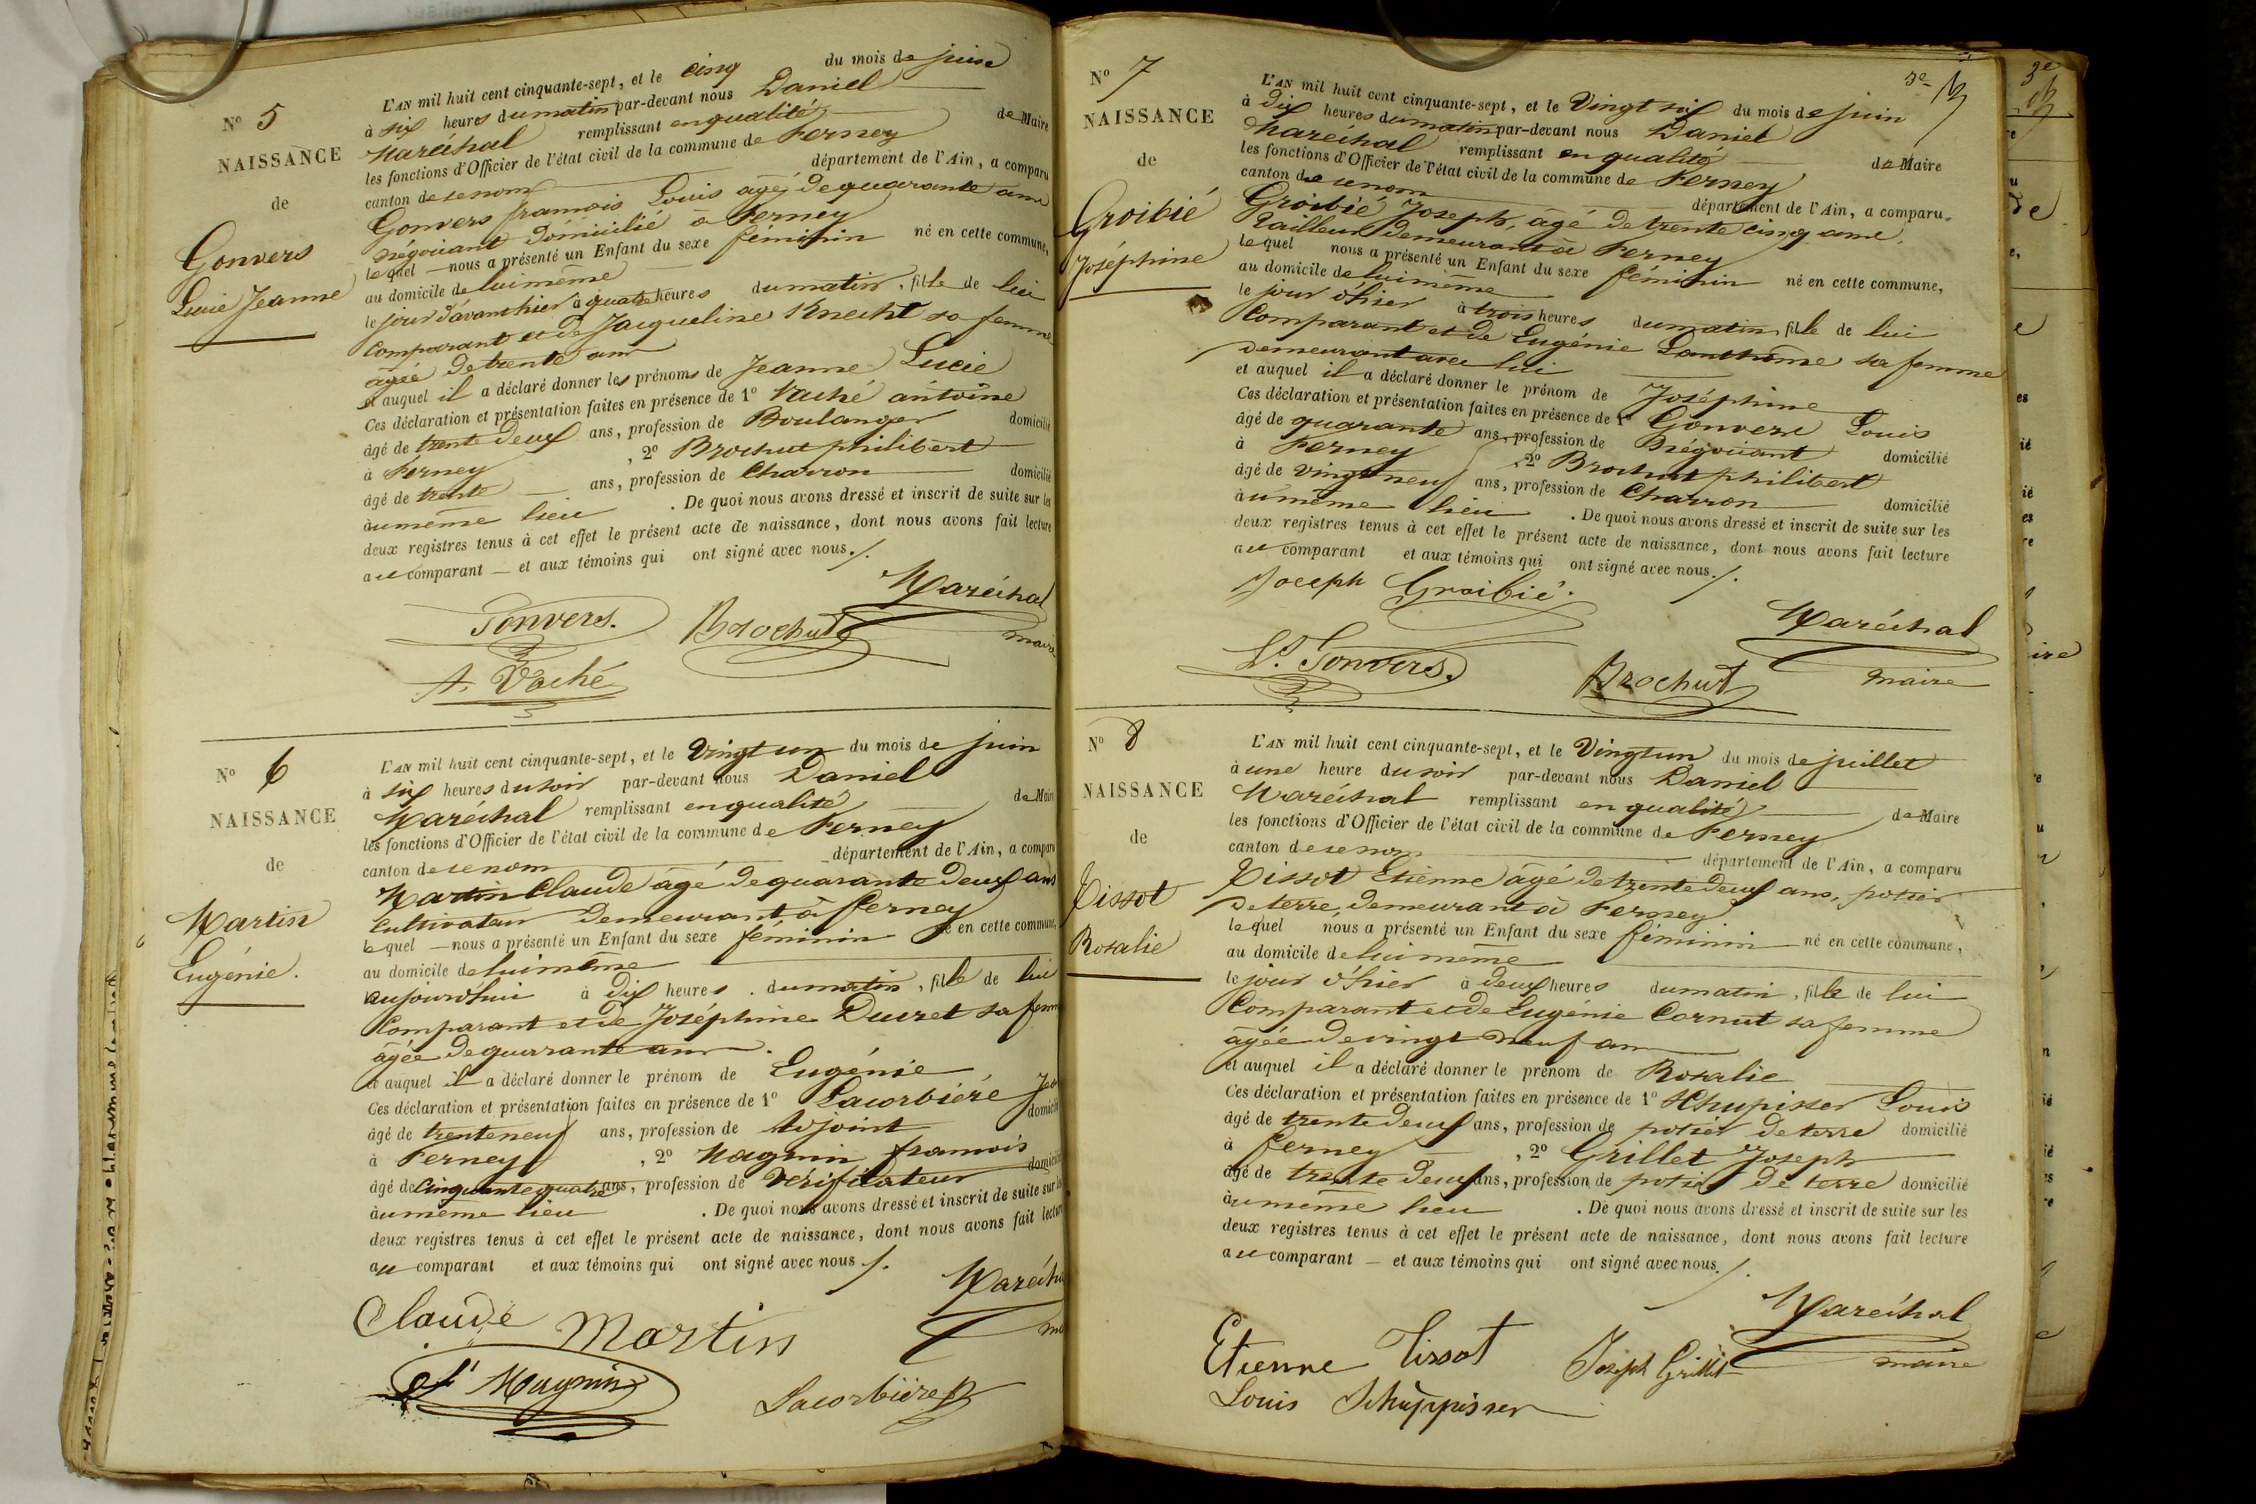 N° 5
NAISSANCE
de
Gonvers
Lucie Jeanne
L'AN mil huit cent cinquante-sept, et le cinq du mois de juin
à six heures du matin par-devant nous Daniel
Maréchal remplissant en qualité de Maire
les fonctions d'Officier de l'état civil de la commune de Ferney
canton de ce nom département de l'Ain, a comparu
Gonvers françois Louis âgé de quarante ans
négociant domicilié à Ferney
lequel nous a présenté un Enfant du sexe féminin né en cette commune,
au domicile de lui même
le jour d'avant hier à quatre heures du matin, fille de lui
Comparant et de Jacqueline Knecht sa femme
âgée de trente ans
et auquel il a déclaré donner les prénoms de Jeanne Lucie
Ces déclaration et présentation faites en présence de 1° Vaché antoine
âgé de trente deux ans, profession de Boulanger domicilié
à Ferney, 2° Brochut philibert
âgé de trente ans, profession de Charron domicilié
au même lieu. De quoi nous avons dressé et inscrit de suite sur les
deux registres tenus à cet effet le présent acte de naissance, dont nous avons fait lecture
au comparant et aux témoins qui ont signé avec nous./.
Maréchal
Gonvers. Brochut
maire
A. Vaché
N° 6
NAISSANCE
de
Martin
Eugénie.
L'AN mil huit cent cinquante-sept, et le Vingt un du mois de juin
à six heures du soir par-devant nous Daniel
Maréchal remplissant en qualité de Maire
les fonctions d'Officier de l'état civil de la commune de Ferney
canton de ce nom département de l'Ain, a comparu
Martin Claude âgé de quarante deux ans
Cultivateur demeurant à ferney
lequel nous a présenté un Enfant du sexe féminin né en cette commune,
au domicile de lui même
aujourd'hui à dix heures du matin, fille de lui
Comparant et de Joséphine Ducret sa femme
âgée de quarante ans.
et auquel il a déclaré donner le prénom de Eugénie
Ces déclaration et présentation faites en présence de 1° Lacorbière
âgé de trente neuf ans, profession de adjoint domicilié
à Ferney, 2° Magnin françois
âgé de Cinquante quatre ans, profession de Vérificateur domicilié
au même lieu. De quoi nous avons dressé et inscrit de suite sur les
deux registres tenus à cet effet le présent acte de naissance, dont nous avons fait lecture
au comparant et aux témoins qui ont signé avec nous./.
Maréchal
Claude Martin
Magnin Lacorbière
3e
N° 7
NAISSANCE
de
Groibié
Joséphine
L'AN mil huit cent cinquante-sept, et le Vingt six du mois de juin
à dix heures du matin par-devant nous Daniel
Maréchal remplissant en qualité de Maire
les fonctions d'Officier de l'état civil de la commune de Ferney
canton de ce nom département de l'Ain, a comparu
Groibié Joseph, âgé de trente cinq ans,
Tailleur demeurant à Ferney
lequel nous a présenté un Enfant du sexe féminin né en cette commune,
au domicile de lui même
le jour d'hier à trois heures du matin, fille de lui
Comparant et de Eugénie sa femme
demeurant avec lui
et auquel il a déclaré donner le prénom de Joséphine
Ces déclaration et présentation faites en présence de 1° Gonvers Louis
âgé de quarante ans, profession de Négociant domicilié
à Ferney, 2° Brochut philibert
âgé de vingt neuf ans, profession de Charron domicilié
au même lieu. De quoi nous avons dressé et inscrit de suite sur les
deux registres tenus à cet effet le présent acte de naissance, dont nous avons fait lecture
au comparant et aux témoins qui ont signé avec nous./.
Joseph Groibié.
Maréchal
Ls. Gonvers. Brochut maire
N° 8
NAISSANCE
de
Tissot
Rosalie
L'AN mil huit cent cinquante-sept, et le Vingt un du mois de juillet
à une heure du soir par-devant nous Daniel
Maréchal remplissant en qualité de Maire
les fonctions d'Officier de l'état civil de la commune de Ferney
canton de ce nom département de l'Ain, a comparu
Tissot Etienne âgé de trente deux ans, potier
de terre, demeurant à Ferney
lequel nous a présenté un Enfant du sexe féminin né en cette commune,
au domicile de lui même
le jour d'hier à deux heures du matin, fille de lui
Comparant et de Eugénie Cornut sa femme
âgée de vingt neuf ans
et auquel il a déclaré donner le prénom de Rosalie
Ces déclaration et présentation faites en présence de 1° Schupisser Louis
âgé de trente deux ans, profession de potier de terre domicilié
à ferney, 2° Grillet Joseph
âgé de trente deux ans, profession de potier de terre domicilié
au même lieu. De quoi nous avons dressé et inscrit de suite sur les
deux registres tenus à cet effet le présent acte de naissance, dont nous avons fait lecture
au comparant et aux témoins qui ont signé avec nous./.
Maréchal
Etienne Tissot Joseph Grillet maire
Louis Schuppisser